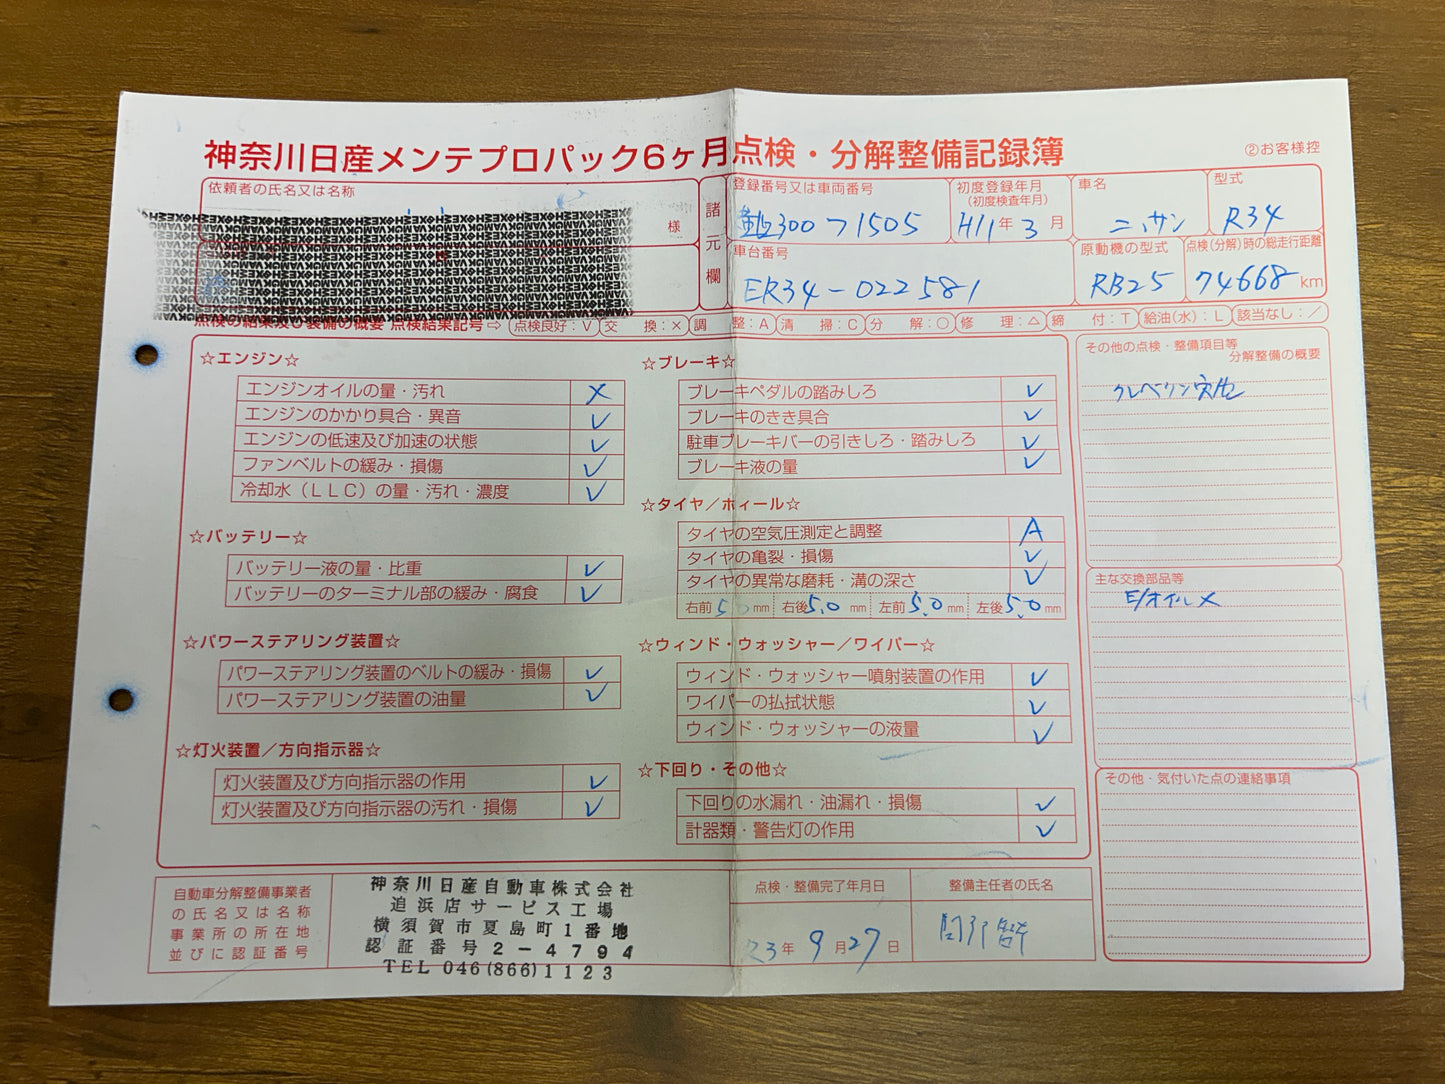 神奈川日産メンテプロパック6ヶ月点検・分解整備記録簿
②お客様控
依頼者の氏名又は名称
様
諸元欄
登録番号又は車両番号
300 フ1505
初度登録年月
(初度検査年月)
H11年3月
車名
ニッサン
型式
R34
車台番号
ER34-022581
原動機の型式
RB25
点検(分解)時の総走行距離
74668 km
点検の結果及び装備の概要 点検結果記号⇨ 点検良好:V 交換:× 調整:A 清掃:C 分解:○ 修理:△ 締付:T 給油(水):L 該当なし:／
☆エンジン☆
エンジンオイルの量・汚れ ×
エンジンのかかり具合・異音 ✓
エンジンの低速及び加速の状態 ✓
ファンベルトの緩み・損傷 ✓
冷却水（ＬＬＣ）の量・汚れ・濃度 ✓
☆バッテリー☆
バッテリー液の量・比重 ✓
バッテリーのターミナル部の緩み・腐食 ✓
☆パワーステアリング装置☆
パワーステアリング装置のベルトの緩み・損傷 ✓
パワーステアリング装置の油量 ✓
☆灯火装置／方向指示器☆
灯火装置及び方向指示器の作用 ✓
灯火装置及び方向指示器の汚れ・損傷 ✓
☆ブレーキ☆
ブレーキペダルの踏みしろ ✓
ブレーキのきき具合 ✓
駐車ブレーキバーの引きしろ・踏みしろ ✓
ブレーキ液の量 ✓
☆タイヤ／ホィール☆
タイヤの空気圧測定と調整 A
タイヤの亀裂・損傷 ✓
タイヤの異常な磨耗・溝の深さ ✓
右前 5.0 mm 右後 5.0 mm 左前 5.0 mm 左後 5.0 mm
☆ウィンド・ウォッシャー／ワイパー☆
ウィンド・ウォッシャー噴射装置の作用 ✓
ワイパーの払拭状態 ✓
ウィンド・ウォッシャーの液量 ✓
☆下回り・その他☆
下回りの水漏れ・油漏れ・損傷 ✓
計器類・警告灯の作用 ✓
その他の点検・整備項目等
分解整備の概要
クレベリン実施
主な交換部品等
E/オイル ×
その他・気付いた点の連絡事項
自動車分解整備事業者
の氏名又は名称
事業所の所在地
並びに認証番号
神奈川日産自動車株式会社
追浜店サービス工場
横須賀市夏島町1番地
認証番号2-4794
TEL 046(866)1123
点検・整備完了年月日
R3年9月27日
整備主任者の氏名